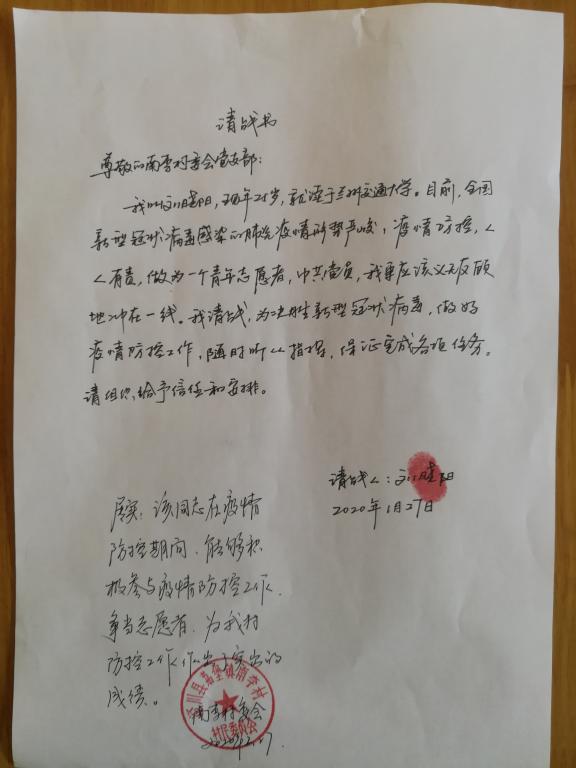 请战书
尊敬的南李村委会党支部：
我叫刘曦阳，现年25岁，就读于兰州交通大学。目前，全国
新型冠状病毒感染的肺炎疫情形势严峻，疫情防控，人
人有责，做为一个青年志愿者，中共党员，我更应该义无反顾
地冲在一线。我请战，为决胜新型冠状病毒，做好
疫情防控工作，随时听从指挥，保证完成各项任务。
请组织给予信任和安排。
请战人：刘曦阳
2020年1月27日
属实，该同志在疫情
防控期间，能够积
极参与疫情防控工作，
争当志愿者，为我村
防控工作作出了突出的
成绩。
南李村委会
川县 堡镇南李村
村民委员会